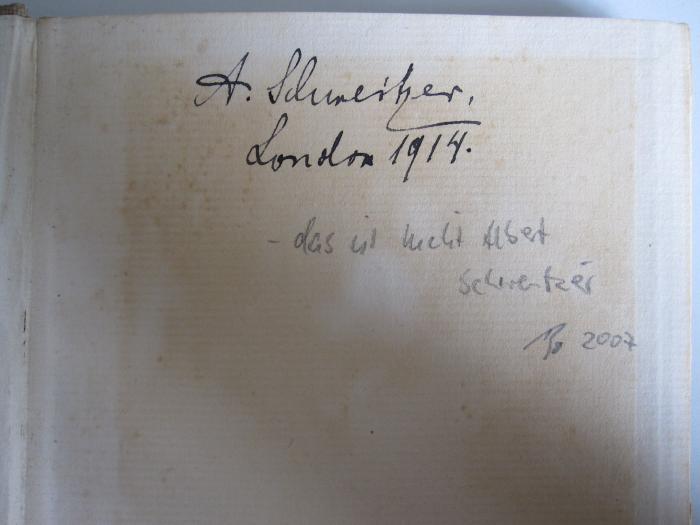 A. Schweitzer.
London 1914.
- das ist nicht Albert
Schweitzer
2007